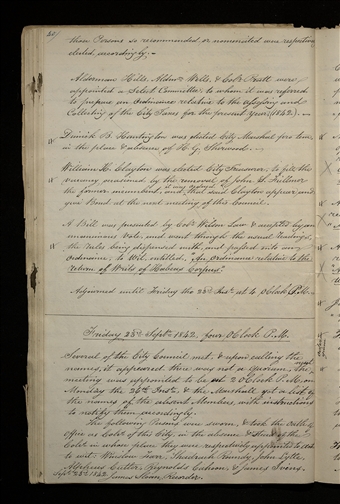 then Persons so recommended or nominated were respectively
elected, accordingly.
Alderman Hills, Aldn. Wells, & Colr. Hatt were
appointed a Select Committee to whom it was referred
to prepare an Ordinance relative to the assessing and
Collecting of the City Taxes for the present year; (1842).
Dimick B. Huntington was elected City Marshal pro tem
in the place & absence of H. G. Sherwood.
William H. Clayton was elected City Treasurer, to fill the
vacancy occasioned by the removal of John S. Fullmer
the former incumbent, and it was ordered that said Clayton appear and
give Bond at the next meeting of this Council.
A Bill was presented by Colr. Wilson Law & accepted by an
unanimous vote, and went through the usual Readings,
the rules being dispensed with, and passed into an
Ordinance; to Wit, entitled, "An Ordinance relative to the
return of Writs of Habeas Corpus."
Adjourned until Friday the 23d. Inst. at 10 o'Clock P.M.
Friday 23d. Septr. 1842, four O'Clock P.M.
Several of the City Council met; & upon calling the
names, it appeared there was not a quorum, the
meeting was appointed to be at 2 O'Clock P.M. on
Monday the 26th Inst. & the Marshall got a list of
the names of the absent Members, with instructions
to notify them accordingly.
The following Persons were sworn, & took the Oath of
Office as Colrs. of this City, in the absence & stead of the
Cold. in whose place they were respectively appointed to
to wit: Winslow Farr, Shadrach Roundy, John Lytle,
Alpheus Cutler, Reynolds Cahoon, & James Ivins.
Septr. 23d. 1842. James Sloan, Recorder.